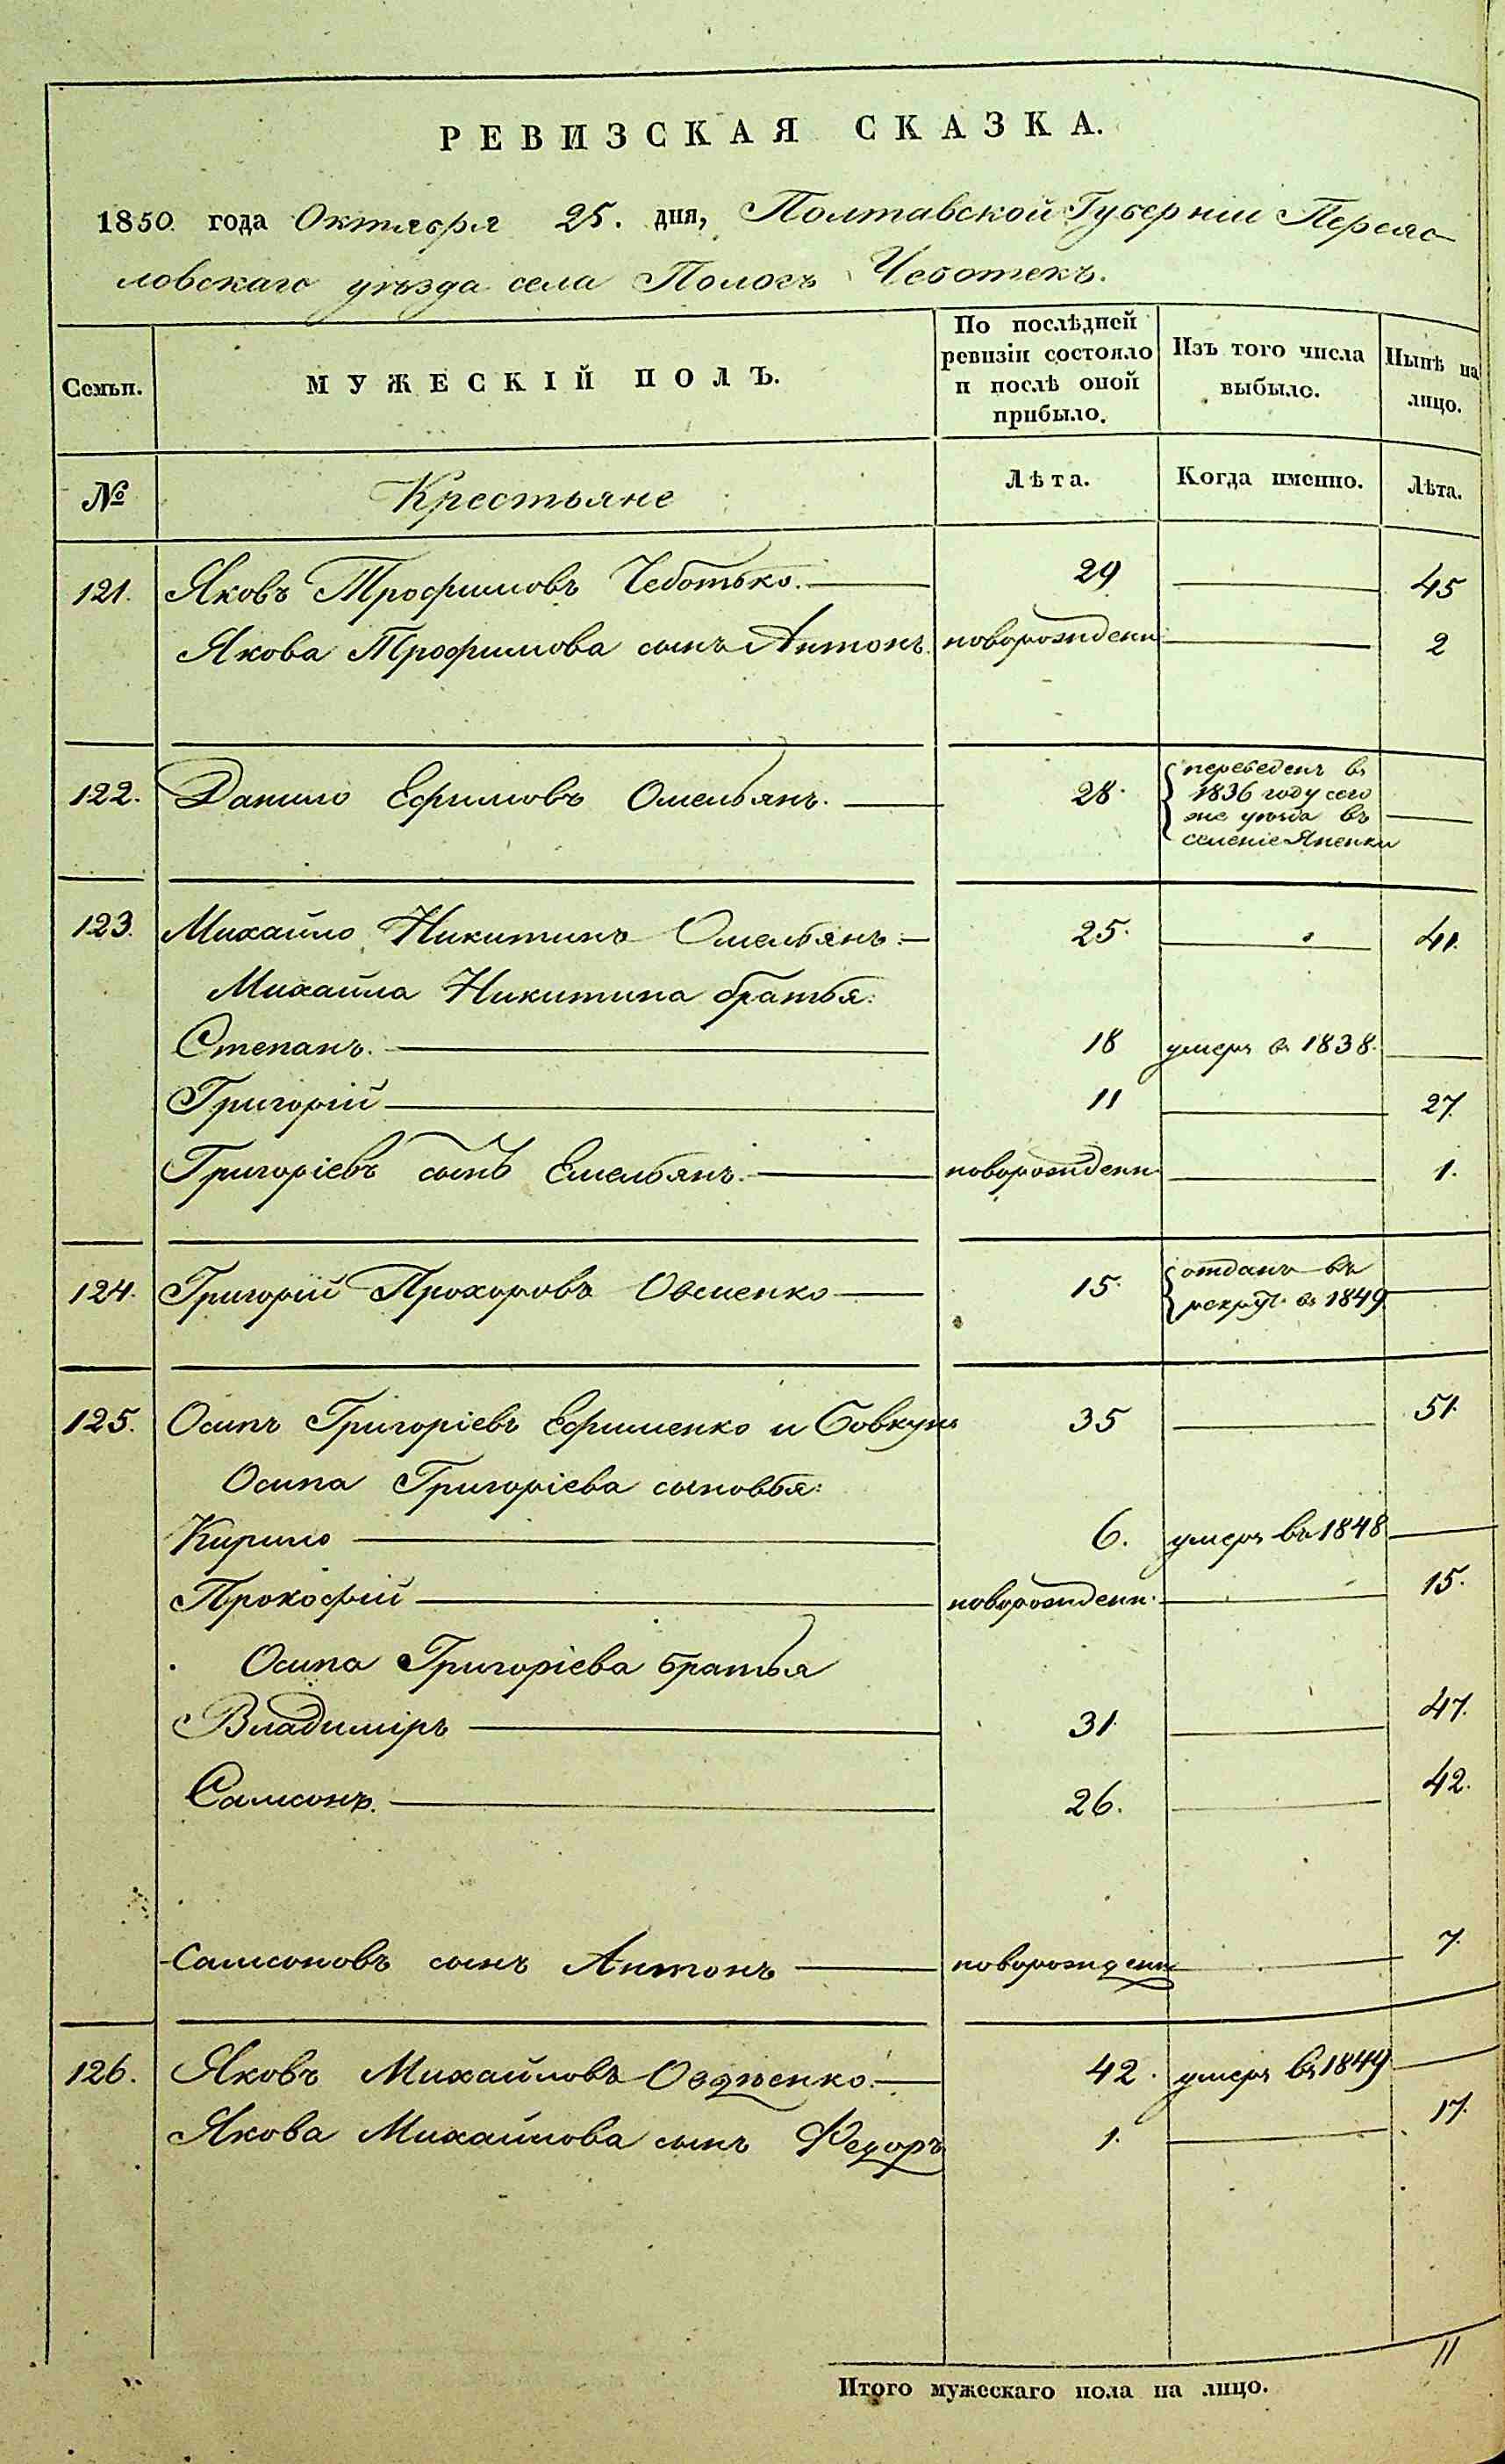 РЕВИЗСКАЯ СКАЗКА.
1850. года Октября 25. дня, Полтавской Губерніи Переяс-
ловскаго уѣзда села Пологъ Чеботекъ.
Семьи. МУЖЕСКІЙ ПОЛЪ. По послѣдней ревизіи состояло и послѣ оной прибыло. Изъ того числа выбыло. Нынѣ на лицо.
№ Крестьяне Лѣта. Когда именно. Лѣта.
121. Яковъ Трофимовъ Чеботько. 29 45
Якова Трофимова сынъ Антонъ. новорожденн 2
122. Данило Ефимовъ Омельянъ. 28. переведенъ въ
1836 году сего
же уѣзда въ
селеніе Яненки
123. Михайло Никитинъ Омельянъ. 25. 41.
Михайла Никитина братья:
Степанъ. 18 умеръ въ 1838.
Григорій 11 27.
Григоріевъ сынъ Емельянъ. новорожденн 1.
124. Григорій Прохоровъ Овсіенко 15. отданъ въ
рекрут. въ 1849
125. Осипъ Григоріевъ Ефименко и Бовкунъ 35 51.
Осипа Григоріева сыновья:
Кирило 6. умеръ въ 1848
Прокофій новорожденн. 15.
Осипа Григоріева братья
Владиміръ 31. 47.
Самсонъ. 26. 42.
Самсоновъ сынъ Антонъ новорожденн 7.
126. Яковъ Михайловъ Овдѣенко. 42. умеръ въ 1849
Якова Михайлова сынъ Федоръ 1. 17.
11
Итого мужескаго пола на лицо.